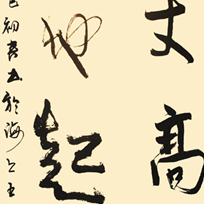 丈高
地起
初書於海上王